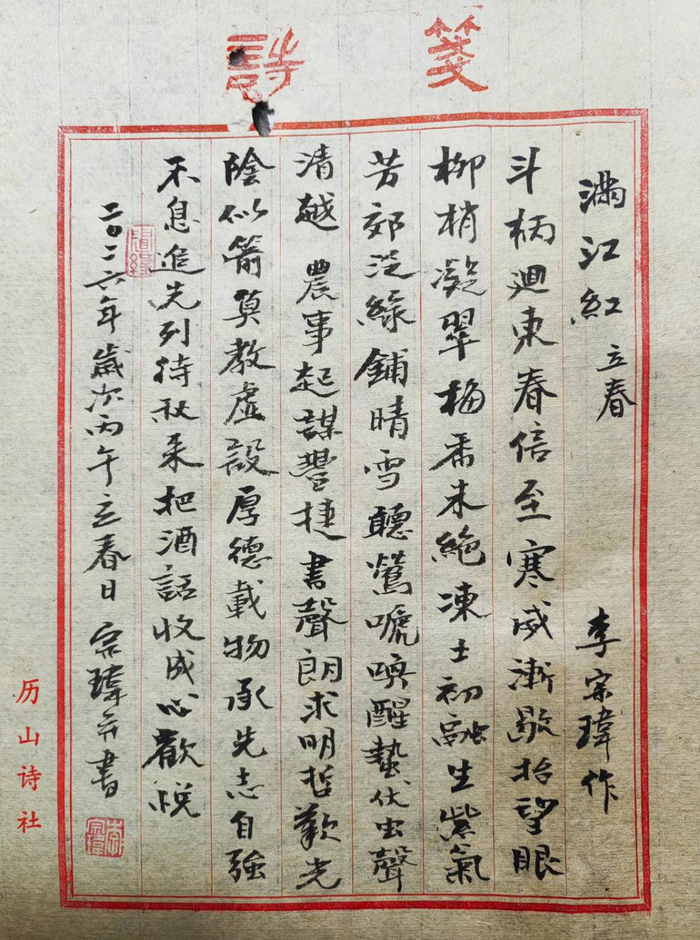 詩箋
滿江紅 立春 李宗瑋作
斗柄廻東春信至寒威漸歇抬望眼
柳梢凝翠梅香未絕凍土初融生紫氣
芳郊泛綠鋪晴雪聽鶯嗁喚醒蟄伏虫聲
清越 農事起謀豐捷書聲朗求明哲歎光
陰似箭莫教虛設厚德載物承先志自強
不息追先列待秋來把酒話收成心歡悅
二〇二六年歲次丙午立春日 宗瑋并書
历山诗社
李宗瑋